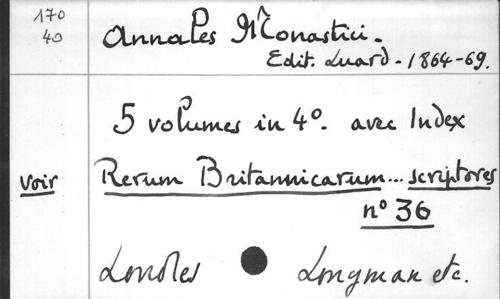 170
40
Annales Monastici.
Edit. Luard - 1864-69.
5 volumes in 4°. avec Index
voir Rerum Britannicarum... scriptores
n° 36
Londres Longman etc.